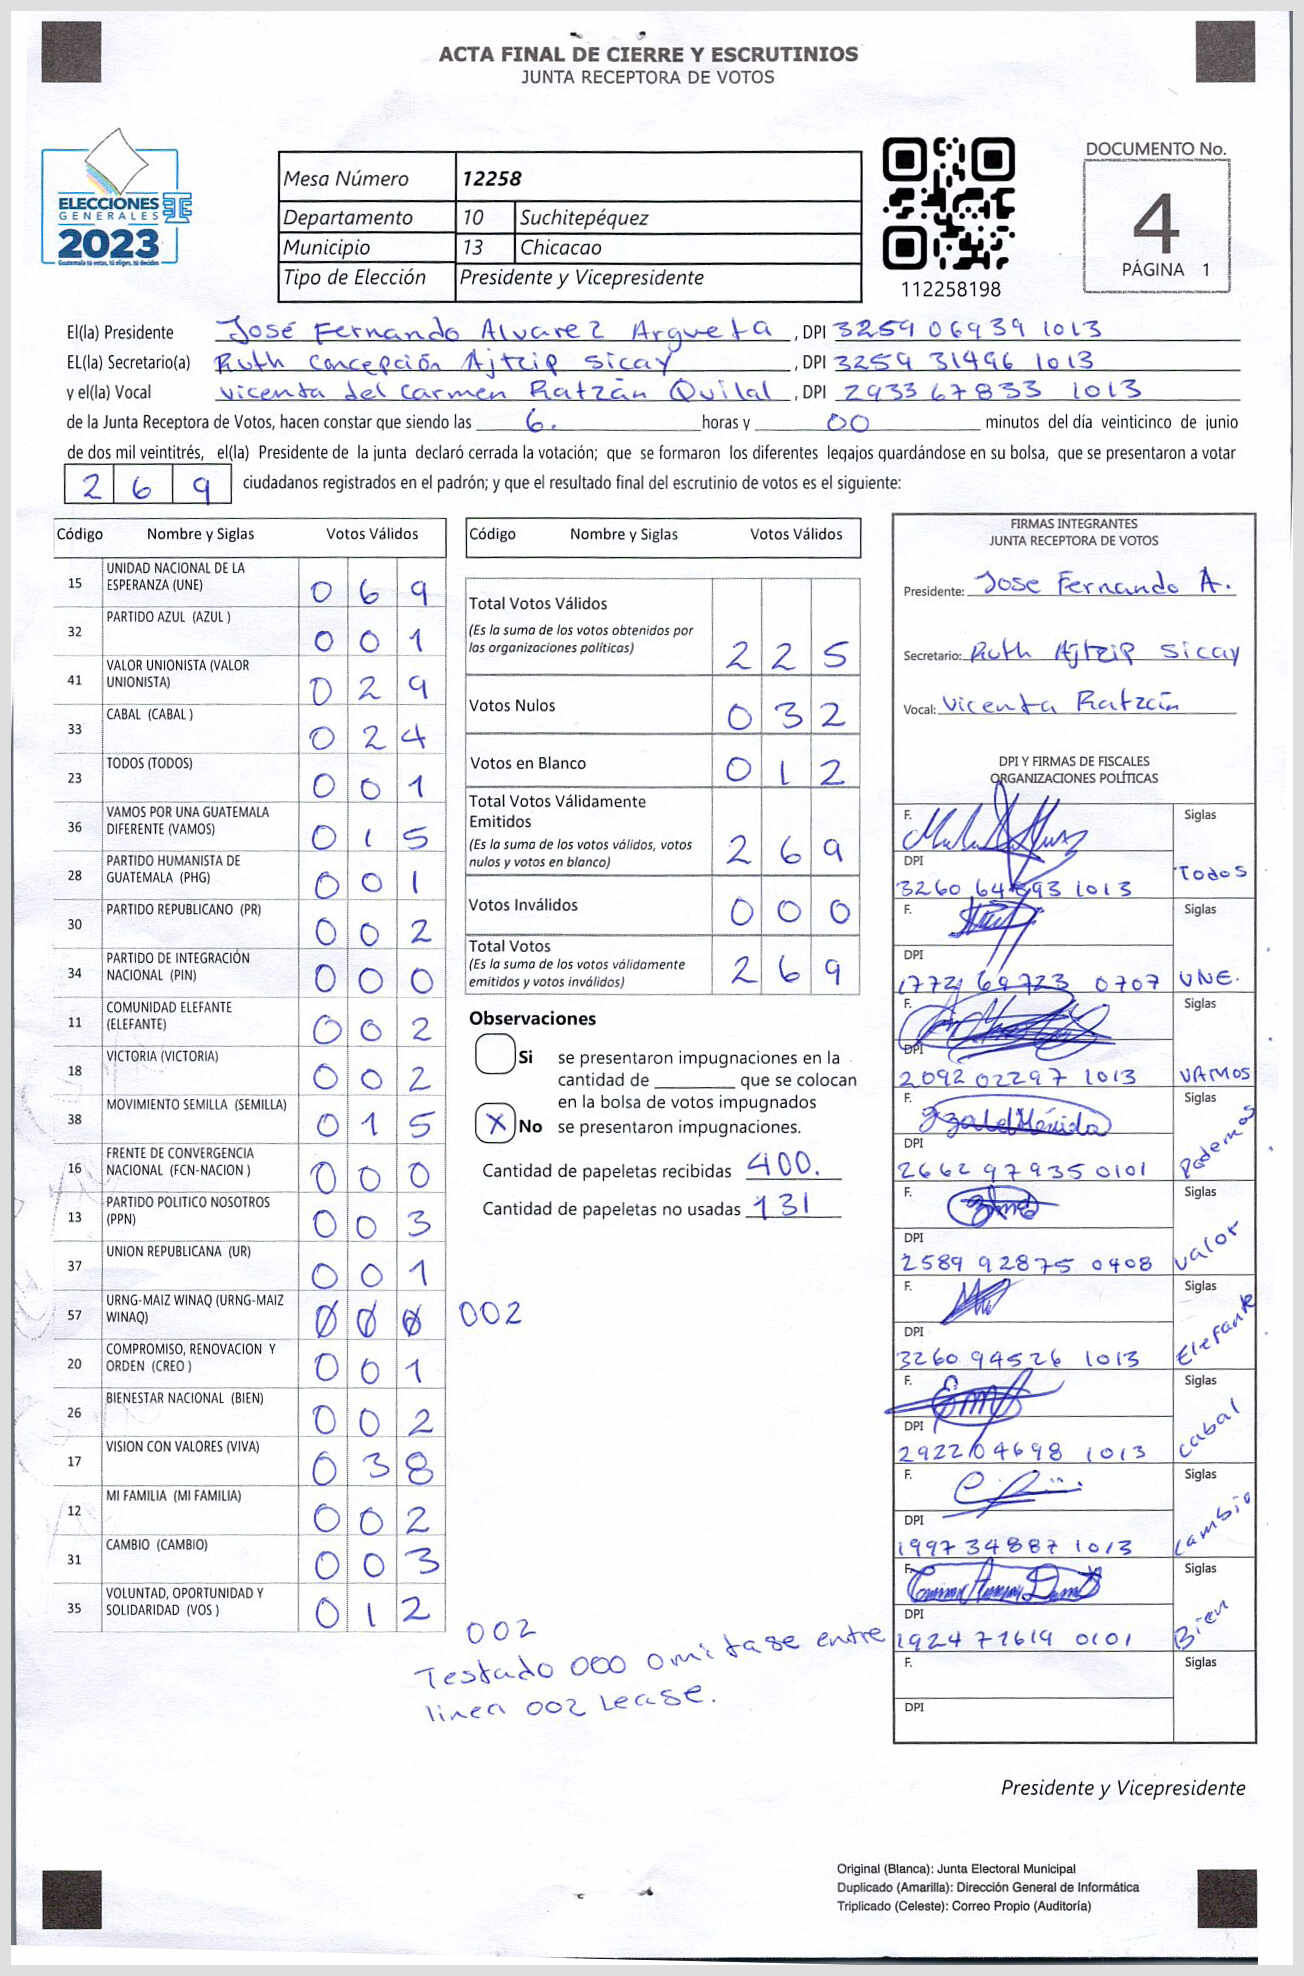 ACTA FINAL DE CIERRE Y ESCRUTINIOS
JUNTA RECEPTORA DE VOTOS
ELECCIONES
GENERALES
2023
Guatemala tú votas, tú eliges, tú decides
Mesa Número 12258
Departamento 10 Suchitepéquez
Municipio 13 Chicacao
Tipo de Elección Presidente y Vicepresidente
112258198
DOCUMENTO No.
4
PÁGINA 1
El(la) Presidente José Fernando Alvarez Argueta, DPI 3259 06939 1013
EL(la) Secretario(a) Ruth Concepción Ajtzip Sicay, DPI 3259 31496 1013
y el(la) Vocal Vicenta del Carmen Ratzán Quilal, DPI 2933 67833 1013
de la Junta Receptora de Votos, hacen constar que siendo las 6. horas y 00 minutos del día veinticinco de junio
de dos mil veintitrés, el(la) Presidente de la junta declaró cerrada la votación; que se formaron los diferentes legajos guardándose en su bolsa, que se presentaron a votar
2 6 9 ciudadanos registrados en el padrón; y que el resultado final del escrutinio de votos es el siguiente:
Código Nombre y Siglas Votos Válidos
15 UNIDAD NACIONAL DE LA
ESPERANZA (UNE) 0 6 9
32 PARTIDO AZUL (AZUL ) 0 0 1
41 VALOR UNIONISTA (VALOR
UNIONISTA) 0 2 9
33 CABAL (CABAL ) 0 2 4
23 TODOS (TODOS) 0 0 1
36 VAMOS POR UNA GUATEMALA
DIFERENTE (VAMOS) 0 1 5
28 PARTIDO HUMANISTA DE
GUATEMALA (PHG) 0 0 1
30 PARTIDO REPUBLICANO (PR) 0 0 2
34 PARTIDO DE INTEGRACIÓN
NACIONAL (PIN) 0 0 0
11 COMUNIDAD ELEFANTE
(ELEFANTE) 0 0 2
18 VICTORIA (VICTORIA) 0 0 2
38 MOVIMIENTO SEMILLA (SEMILLA) 0 1 5
16 FRENTE DE CONVERGENCIA
NACIONAL (FCN-NACION ) 0 0 0
13 PARTIDO POLITICO NOSOTROS
(PPN) 0 0 3
37 UNION REPUBLICANA (UR) 0 0 1
57 URNG-MAIZ WINAQ (URNG-MAIZ
WINAQ) 0 0 0 002
20 COMPROMISO, RENOVACION Y
ORDEN (CREO ) 0 0 1
26 BIENESTAR NACIONAL (BIEN) 0 0 2
17 VISION CON VALORES (VIVA) 0 3 8
12 MI FAMILIA (MI FAMILIA) 0 0 2
31 CAMBIO (CAMBIO) 0 0 3
35 VOLUNTAD, OPORTUNIDAD Y
SOLIDARIDAD (VOS ) 0 1 2
Código Nombre y Siglas Votos Válidos
Total Votos Válidos
(Es la suma de los votos obtenidos por
las organizaciones políticas) 2 2 5
Votos Nulos 0 3 2
Votos en Blanco 0 1 2
Total Votos Válidamente
Emitidos
(Es la suma de los votos válidos, votos
nulos y votos en blanco) 2 6 9
Votos Inválidos 0 0 0
Total Votos
(Es la suma de los votos válidamente
emitidos y votos inválidos) 2 6 9
Observaciones
Si se presentaron impugnaciones en la
cantidad de ________ que se colocan
en la bolsa de votos impugnados
X No se presentaron impugnaciones.
Cantidad de papeletas recibidas 400.
Cantidad de papeletas no usadas 131
002
Testado 000 omitase entre
linea 002 Lease.
FIRMAS INTEGRANTES
JUNTA RECEPTORA DE VOTOS
Presidente: Jose Fernando A.
Secretario: Ruth Ajtzip Sicay
Vocal: Vicenta Ratzán
DPI Y FIRMAS DE FISCALES
ORGANIZACIONES POLÍTICAS
F. Siglas
DPI Todos
3260 64893 1013
F. Siglas
DPI
1772 69723 0707 UNE.
F. Siglas
DPI
2092 02297 1013 VAMOS
F. Siglas
DPI Podemos
2662 97935 0101
F. Siglas
DPI Valor
2589 92875 0408
F. Siglas
DPI Elefante
3260 94526 1013
F. Siglas
DPI Cabal
2922 04698 1013
F. Siglas
DPI Cambio
1997 34887 1013
F. Siglas
DPI Bien
1924 71619 0101
F. Siglas
DPI
Presidente y Vicepresidente
Original (Blanca): Junta Electoral Municipal
Duplicado (Amarilla): Dirección General de Informática
Triplicado (Celeste): Correo Propio (Auditoría)